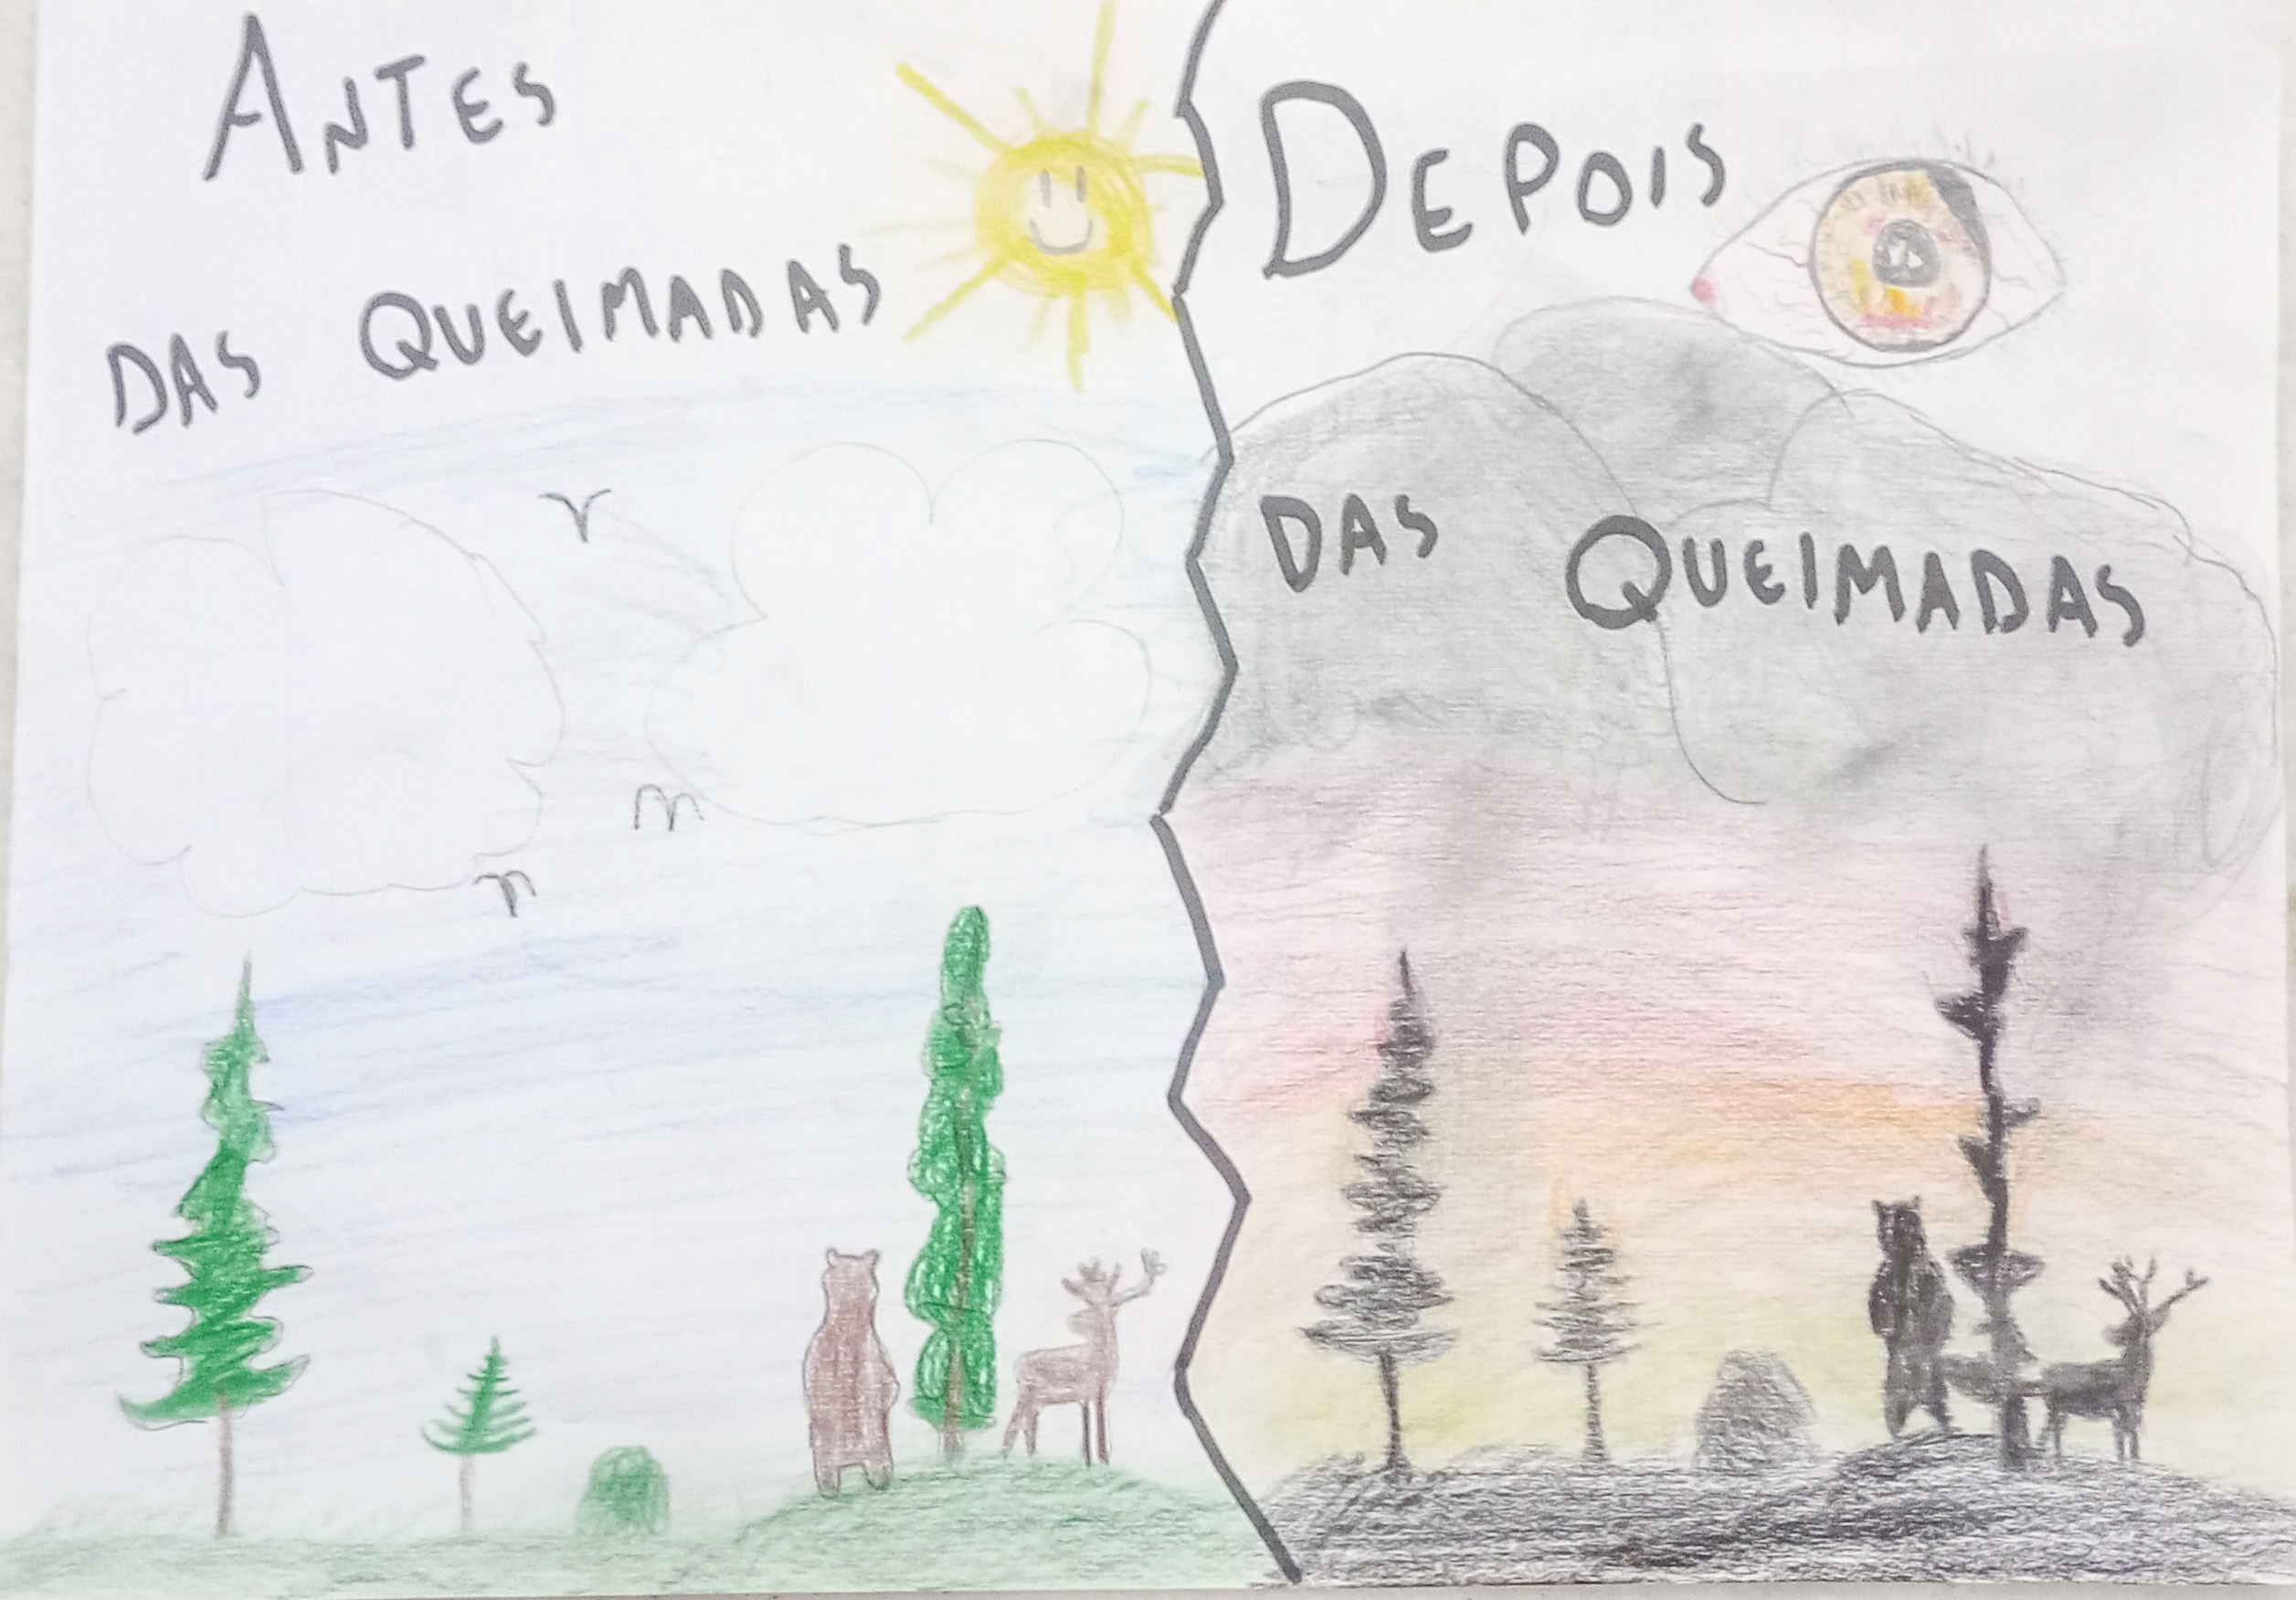 ANTES
DAS QUEIMADAS
DEPOIS
DAS QUEIMADAS